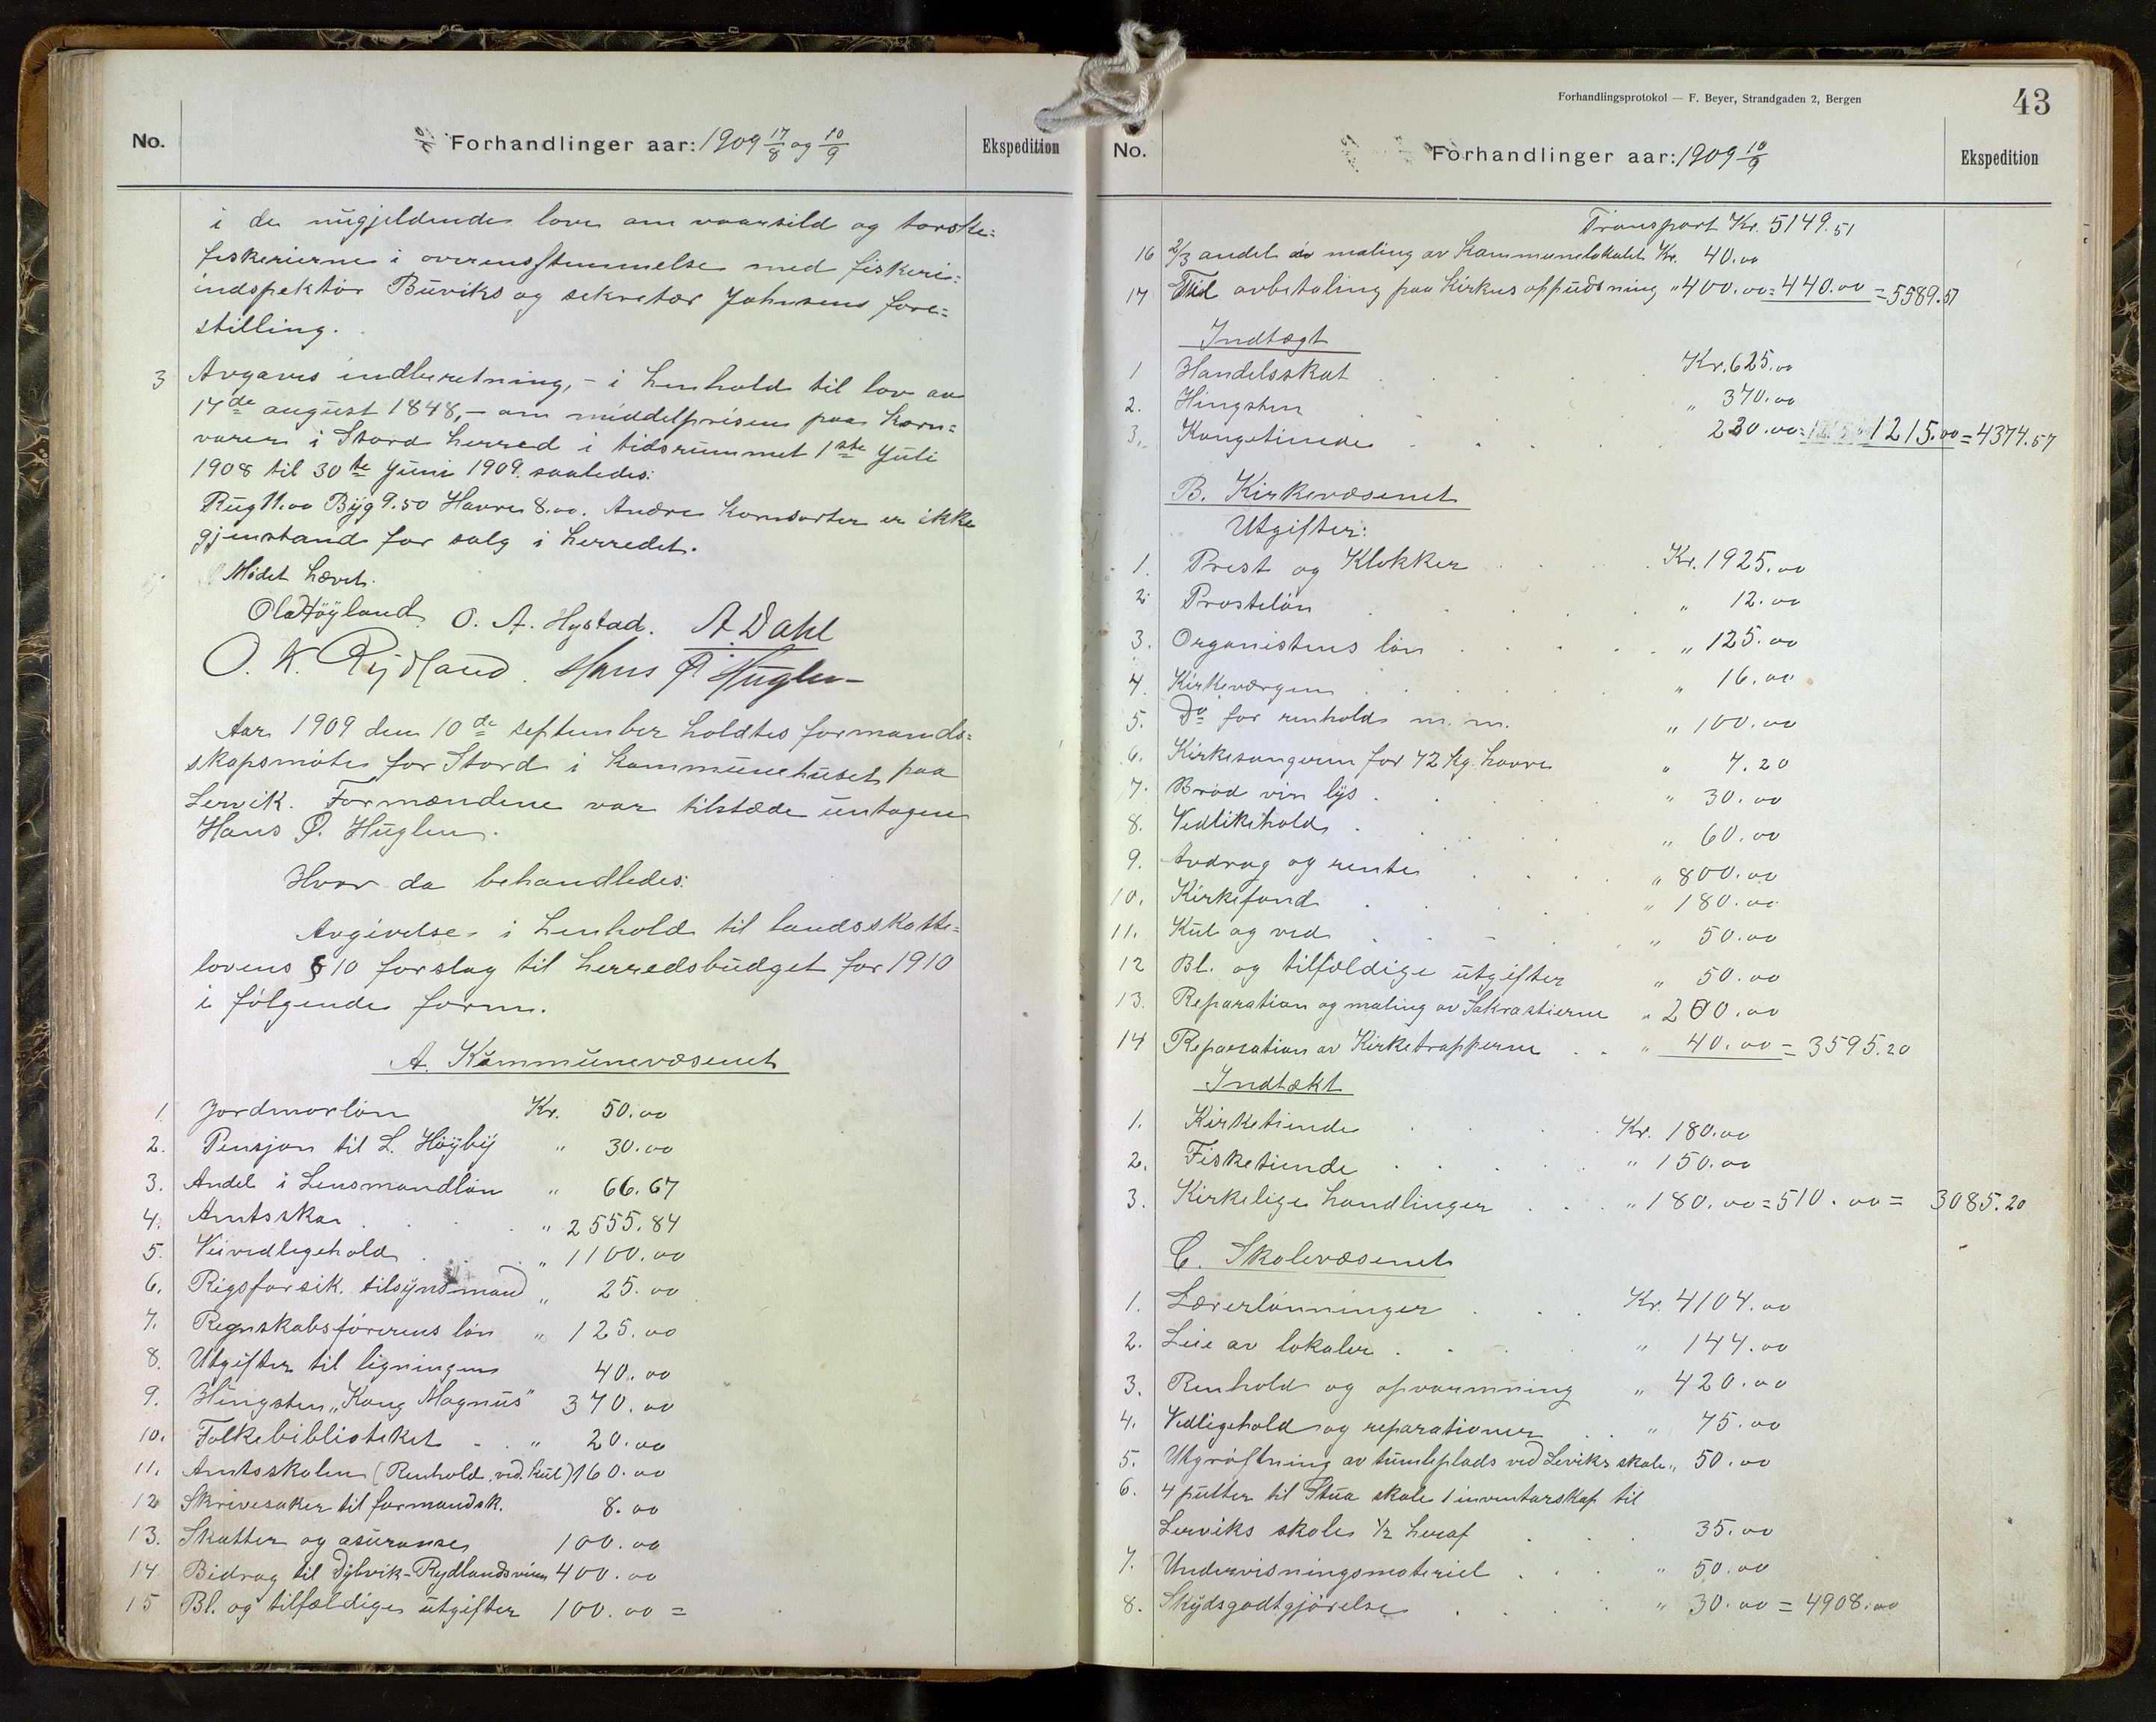 No. Forhandlinger aar: 1909 17/8 og 10/9 Ekspedition
i de nugjeldende love om vaarsild og torske=
fiskerierne i overensstemmelse med fiskeri=
indspektør Buviks og sekretær Johnsens fore=
stilling.
3 Avgaves indberetning, - i henhold til lov av
17de august 1848, - om middelprisen paa korn=
varer i Stord herred i tidsrummet 1ste Juli
1908 til 30te Juni 1909 saaledes:
Rug 11.00 Byg 9.50 Havre 8.00. Andre kornsorter er ikke
gjenstand for salg i herredet.
Mødet hævet.
Ola Høyland O. A. Hystad. A. Dahl
O. K. Rydland. Hans Ø Huglen
Aar 1909 den 10de september holdtes formands=
skapsmøte for Stord i kommunehuset paa
Lervik. Formændene var tilstæde untagen
Hans Ø. Huglen.
Hvor da behandledes:
Avgivelse i henhold til landsskatte=
lovens § 10 forslag til herredsbudget for 1910
i følgende form.
A. Kommunevæsenet
1. Jordmorløn Kr. 50.00
2. Pensjon til L. Høyby " 30.00
3. Andel i Lensmandløn " 66.67
4. Amtsskat " 2555.84
5. Veivedligehold " 1100.00
6. Rigsforsik. tilsynsmand " 25.00
7. Regnskabsførerens løn " 125.00
8. Utgifter til ligningen 40.00
9. Hingsten "Kong Magnus" 370.00
10. Folkebiblioteket " 20.00
11. Amtsskolen (Renhold, ved. kul) 160.00
12 Skrivesaker til formandsk. 8.00
13. Skatter og asuranse 100.00
14 Bidrag til Dybvik-Rydlandsveien 400.00
15 Bl. og tilfældige utgifter 100.00 =
Forhandlingsprotokol — F. Beyer, Strandgaden 2, Bergen 43
No. Forhandlinger aar: 1909 10/9 Ekspedition
Transport Kr. 5149.51
16 2/3 andel av maling av kommunelokalet Kr. 40.00
17 Til avbetaling paa kirkens oppudsning " 400.00 = 440.00 = 5589.51
Indtægt
1 Handelsskat Kr. 625.00
2. Hingsten " 370.00
3. Kongetiende 220.00 = 1215.00 = 4374.57
B. Kirkevæsenet
Utgifter:
1. Prest og Klokker Kr. 1925.00
2 Prosteløn " 12.00
3. Organistens løn " 125.00
4. Kirkeværgen " 16.00
5. Do for renhold m. m. " 100.00
6. Kirkesangeren for 72 kg. havre " 7.20
7. Brød vin lys " 30.00
8. Vedlikehold " 60.00
9. Avdrag og rente " 800.00
10. Kirkefond " 180.00
11. Kul og ved " 50.00
12 Bl. og tilfældige utgifter " 50.00
13. Reparation og maling av Sakrastierne " 200.00
14 Reparation av Kirketrapperne " 40.00 = 3595.20
Indtækt
1. Kirketiende Kr. 180.00
2. Fisketiende " 150.00
3. Kirkelige handlinger " 180.00 = 510.00 = 3085.20
C. Skolevæsenet
1. Lærerlønninger Kr. 4104.00
2. Leie av lokaler " 144.00
3. Renhold og opvarmning " 420.00
4. Vedligehold og reparationer " 75.00
5. Utgrøftning av tumleplads ved Leviks skole " 50.00
6. 4 pulter til Stua skole 1 inventarskap til
Lerviks skole 1/2 heraf 35.00
7. Undervisningsmateriel " 50.00
8. Skydsgodtgjørelse " 30.00 = 4908.00